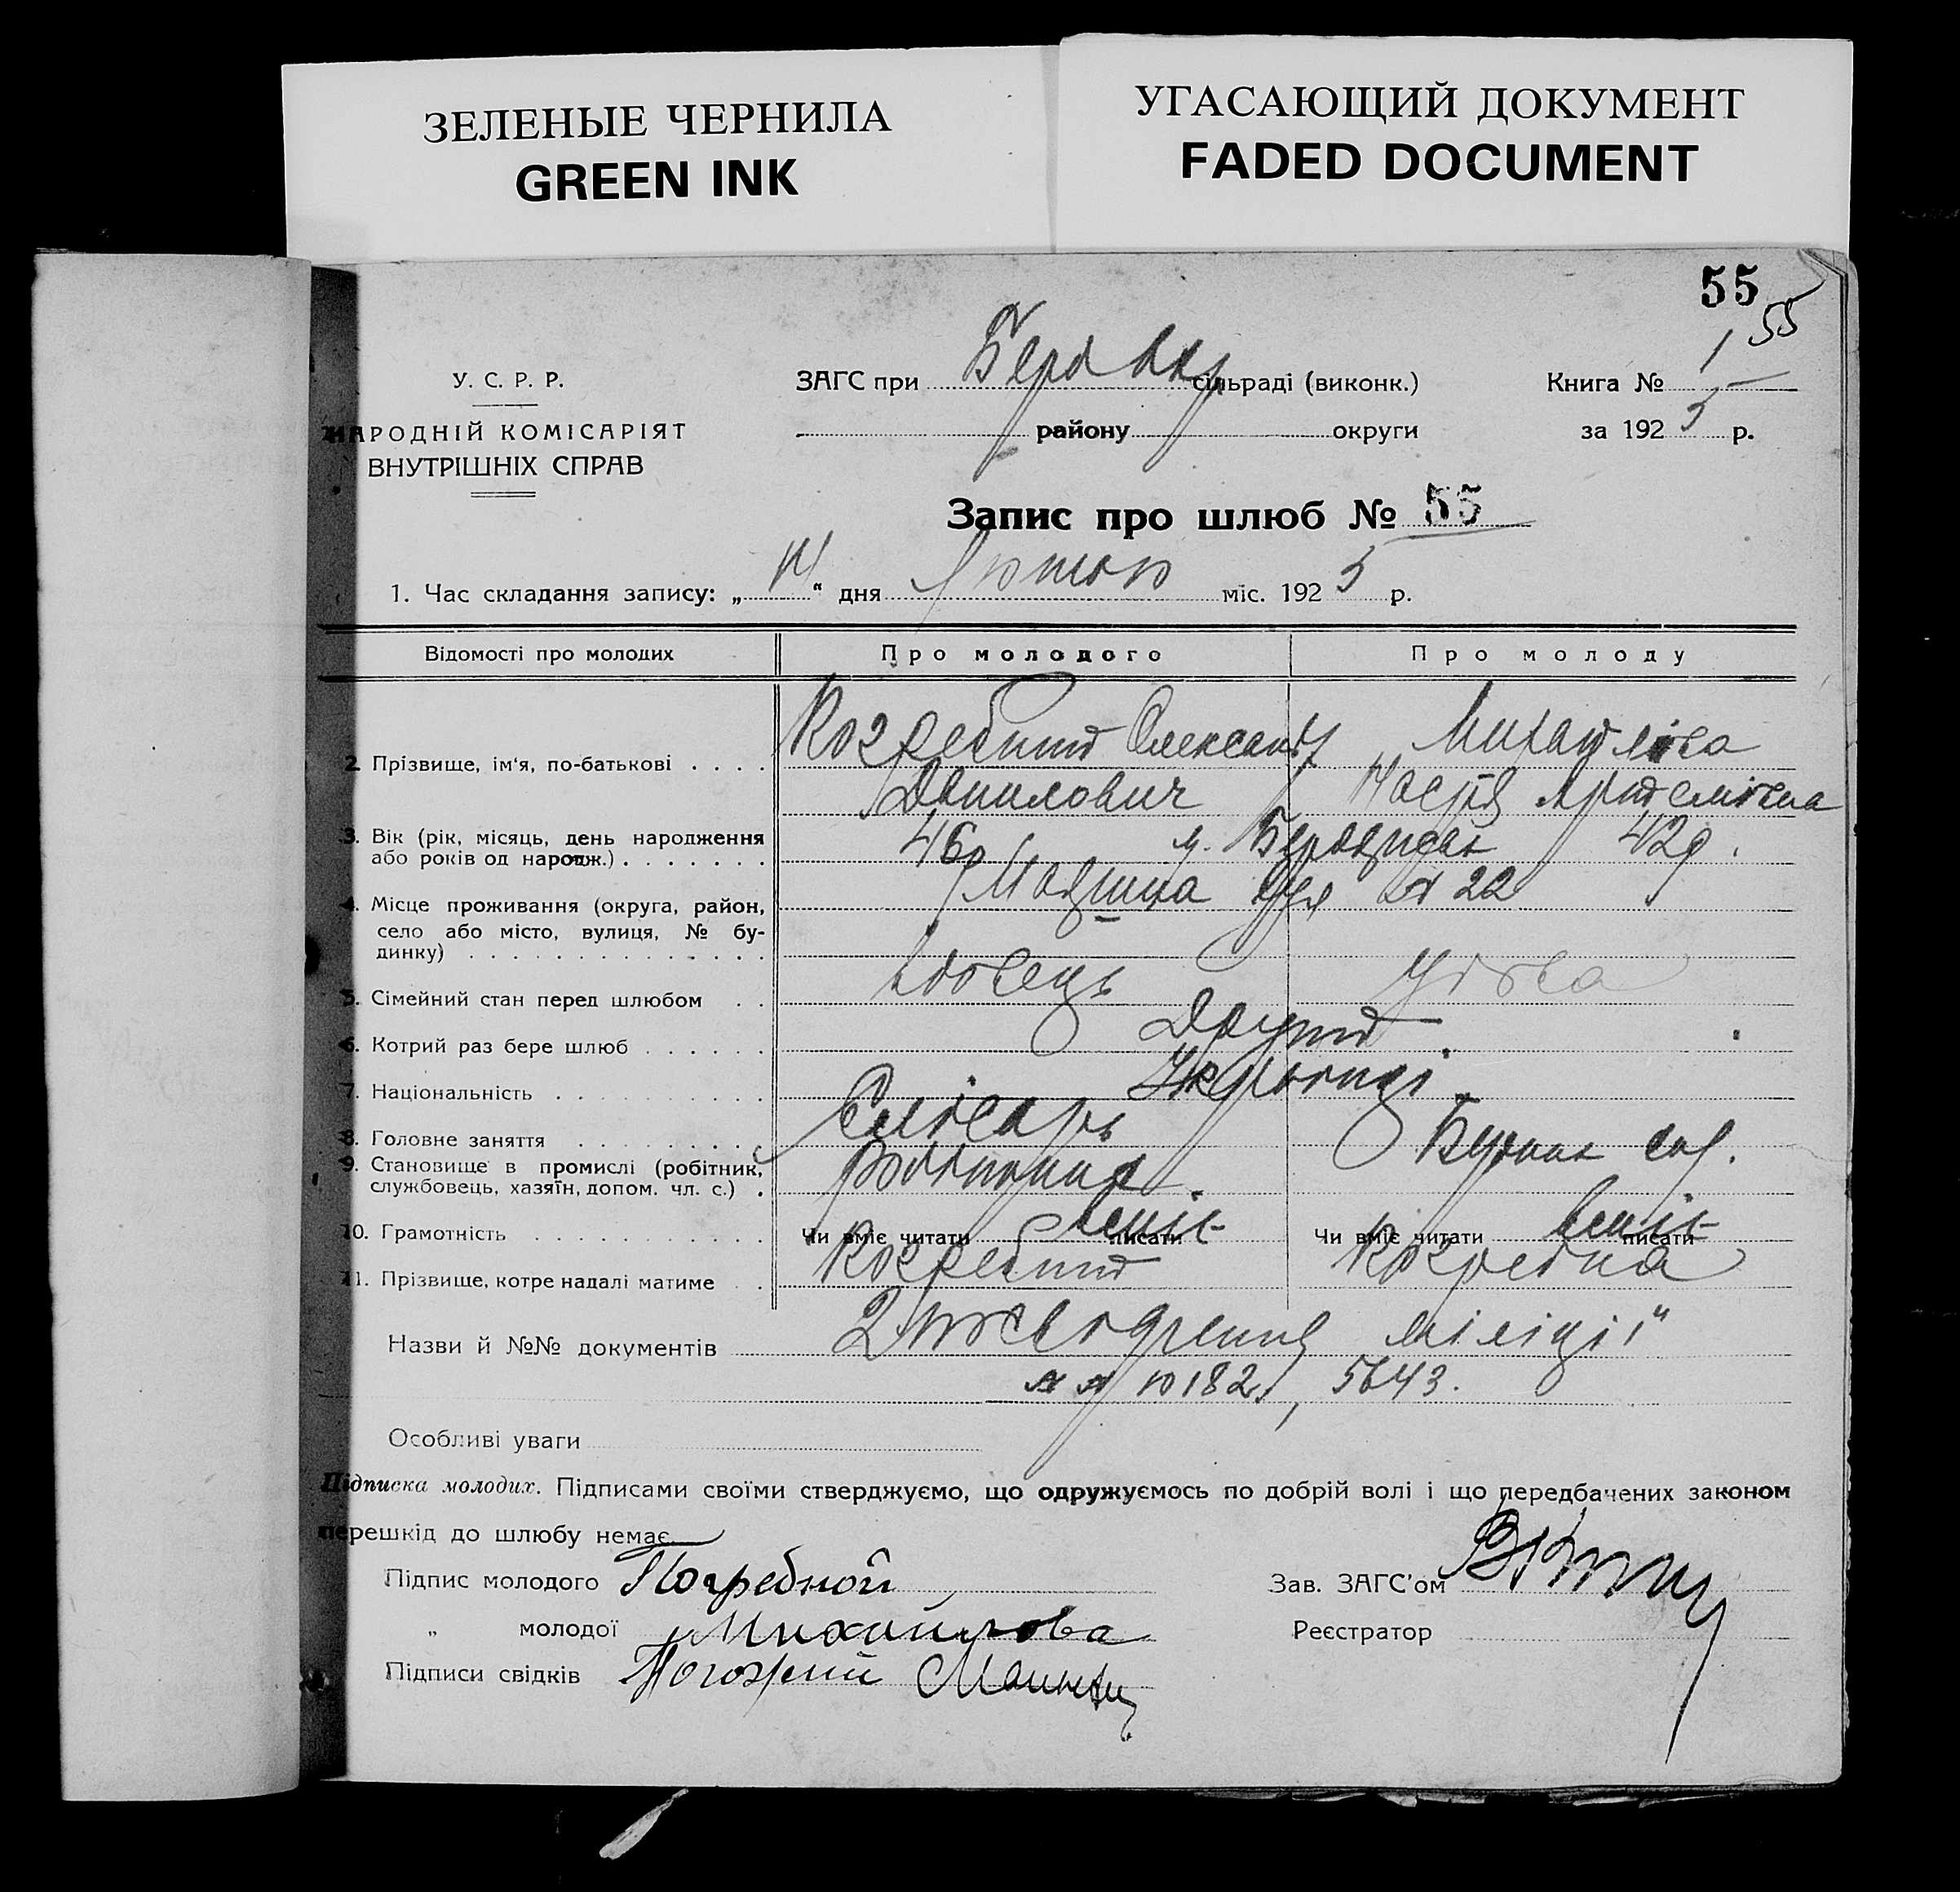 ЗЕЛЕНЫЕ ЧЕРНИЛА
GREEN INK
УГАСАЮЩИЙ ДОКУМЕНТ
FADED DOCUMENT
55
55
У. С. Р. Р.
НАРОДНІЙ КОМІСАРІЯТ
ВНУТРІШНІХ СПРАВ
ЗАГС при сільраді (виконк.)
району округи
Книга № 1
за 1925 р.
Запис про шлюб № 55
1. Час складання запису: „14“ дня Лютого міс. 1925 р.
Відомості про молодих Про молодого Про молоду
2. Прізвище, ім'я, по-батькові . . . . Олександр
Данилович
3. Вік (рік, місяць, день народження
або років од народж.) . . . . . . . 46р 42р.
4. Місце проживання (округа, район,
село або місто, вулиця, № бу-
динку) . . . . . . . . . . . . . . № 22
5. Сімейний стан перед шлюбом . . вдовець удова
6. Котрий раз бере шлюб . . . . . . Другий.
7. Національність . . . . . . . . . . Українці.
8. Головне заняття . . . . . . . . . Слюсарь
9. Становище в промислі (робітник,
службовець, хазяїн, допом. чл. с.) . Робітник.
10. Грамотність . . . . . . . . . . . Чи вміє читати писати вміє Чи вміє читати писати вміє
11. Прізвище, котре надалі матиме . .
Назви й №№ документів 2 посвідчення міліції
№ № 10182, 5643.
Особливі уваги
Підписка молодих. Підписами своїми стверджуємо, що одружуємось по добрій волі і що передбачених законом
перешкід до шлюбу немає.
Підпис молодого Погребной
„ молодої Михайлова
Підписи свідків
Зав. ЗАГС'ом
Реєстратор